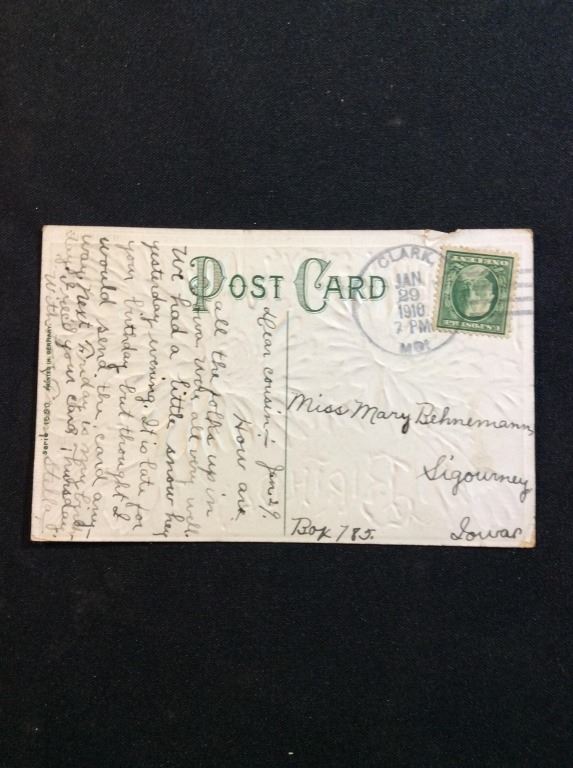 POST CARD
CLARK,
JAN
29
1910
7 PM
MO.
ONE CENT
Miss Mary Behnemann,
Sigourney
Box 785. Iowa
Dear cousin:- Jan. 29.
How are
all the folks up in
We are all very well.
We had a little snow here
yesterday evening. It is late for
your birthday but thought I
would send the card any-
way. Next Sunday is my birth-
day. I rec'd your card Thursday.
With Stella J.
PRINTED IN GERMANY